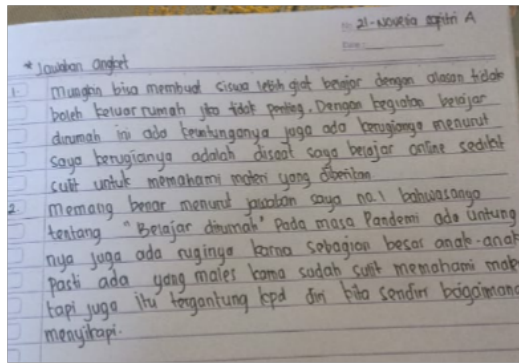 No: 21-Noveria sapitri A
Date:
* Jawaban angket
1. Mungkin bisa membuat siswa lebih giat belajar dengan alasan tidak
boleh keluar rumah jika tidak penting. Dengan kegiatan belajar
dirumah ini ada keuntunganya juga ada kerugianya menurut
saya kerugianya adalah disaat saya belajar online sedikit
sulit untuk memahami materi yang diberikan
2. Memang benar menurut jawaban saya no.1 bahwasanya
tentang "Belajar dirumah" Pada masa Pandemi ada untung
nya juga ada ruginya karna sebagian besar anak-anak
pasti ada yang males karna sudah sulit memahami mate
tapi juga itu tergantung kpd diri kita sendiri bagaimana
menyikapi.